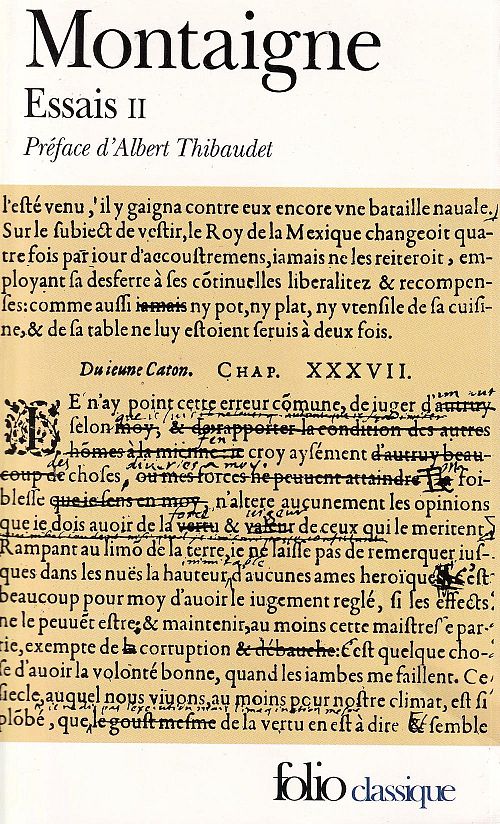 Montaigne
Essais II
Préface d'Albert Thibaudet
l'esté venu, il y gaigna contre eux encore vne bataille nauale.
Sur le subiect de vestir, le Roy de la Mexique changeoit qua-
tre fois par iour d'accoustremens, iamais ne les reiteroit, em-
ployant sa desferre à ses cõtinuelles liberalitez & recompen-
ses: comme aussi iamais ny pot, ny plat, ny vtensile de sa cuisi-
ne, & de sa table ne luy estoient seruis à deux fois.
Du ieune Caton. CHAP. XXXVII.
IE n'ay point cette erreur cõmune, de iuger d'autruy
selon moy, & de rapporter la condition des autres
hõmes à la mienne: ie croy aysément d'autruy beau-
coup de choses, ou mes forces ne peuuent attaindre
foi-
blesse que ie sens en moy, n'altere aucunement les opinions
que ie dois auoir de la vertu & valeur de ceux qui le meritent.
Rampant au limõ de la terre, ie ne laisse pas de remerquer ius-
ques dans les nuës la hauteur d'aucunes ames heroïques C'est
beaucoup pour moy d'auoir le iugement reglé, si les effects
ne le peuuẽt estre; & maintenir au moins cette maistresse par-
tie, exempte de la corruption & débauche: C'est quelque cho-
se d'auoir la volonté bonne, quand les iambes me faillent. Ce
siecle, auquel nous viuons, au moins pour nostre climat, est si
plõbé, que le goust mesme de la vertu en est à dire & semble
folio classique